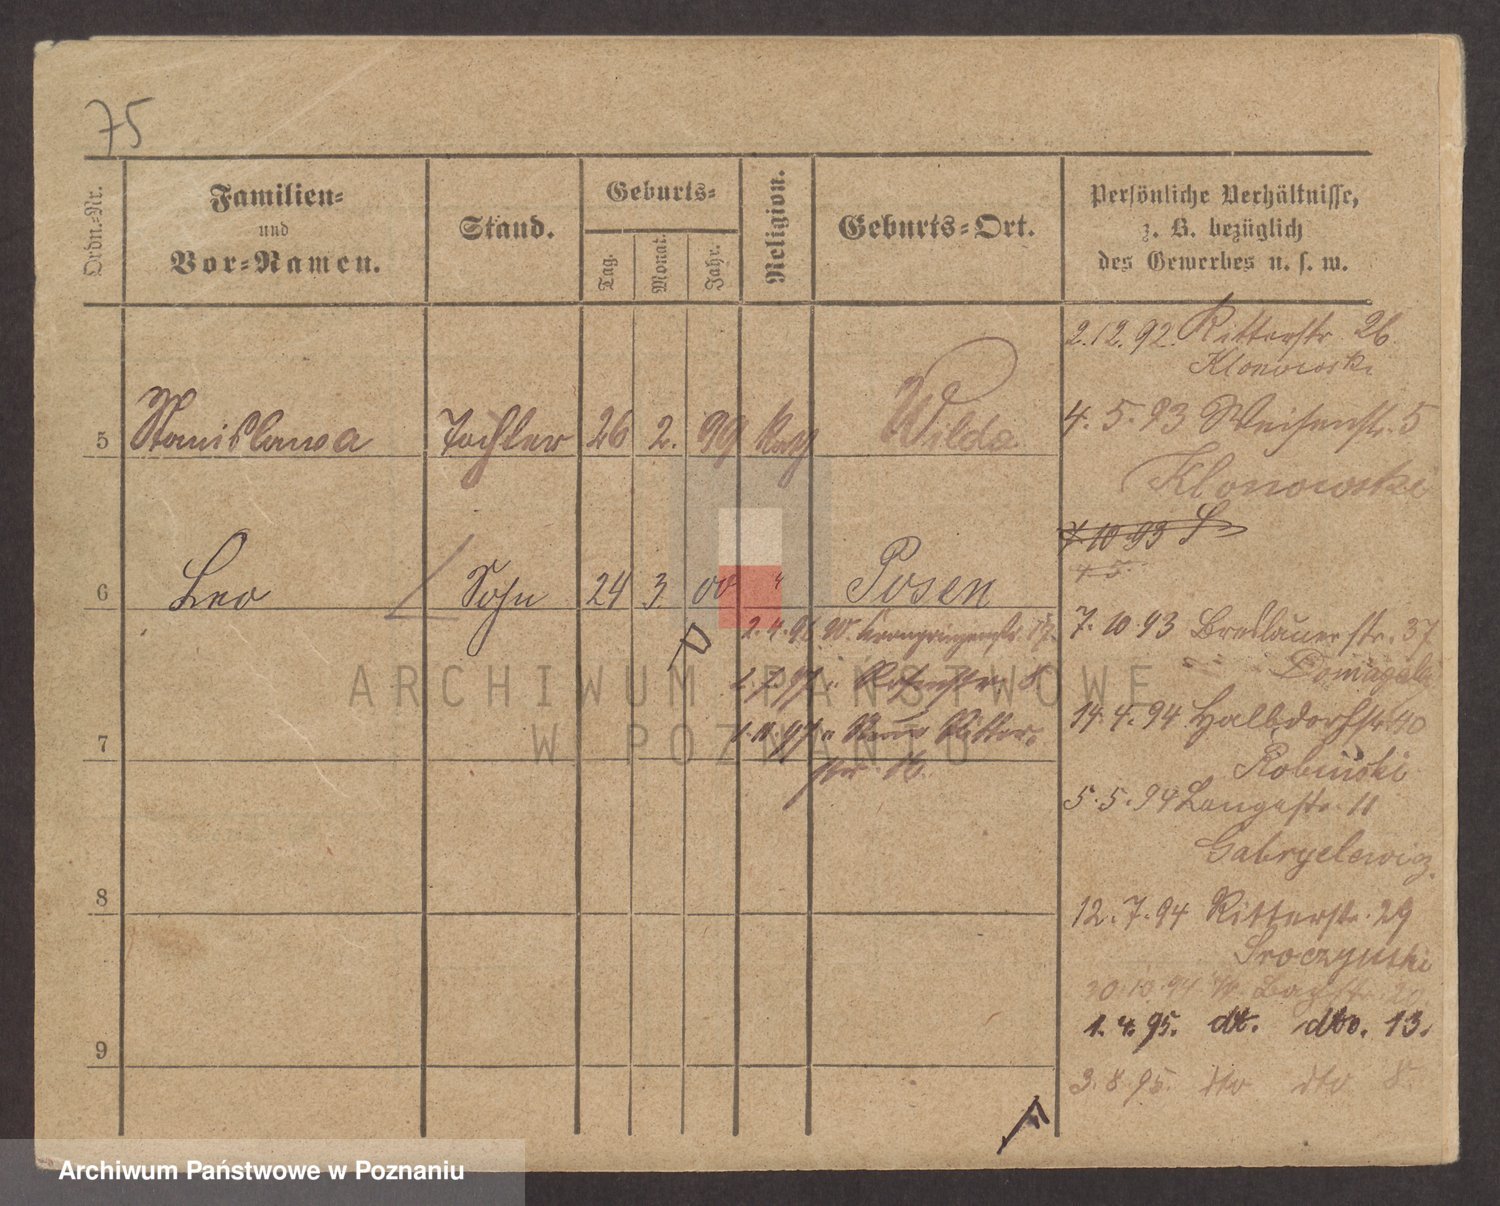 75
Ordn.-Nr.
Familien-
und
Vor-Namen.
Stand.
Geburts-
Tag.
Monat.
Jahr.
Religion.
Geburts-Ort.
Persönliche Verhältnisse,
z. B. bezüglich
des Gewerbes u. s. w.
2.12.92. Ritterstr. 26.
Klonowski
5 Stanislawa Tochter 26 2. 99 Kath Wilda
4.5.93 Weisenstr. 5
Klonowski
7.10.93
6 Leo Sohn 24 3 00 " Posen
7.10.93 Breslauerstr. 37
2.4.96. W. Kronprinzenstr.
14.4.94 Halbdorfstr. 40
7
Robinski
5.5.94 Langestr. 11
Gabryelewicz.
8
12.7.94 Ritterstr. 29
Sroczynski
30.10.94
1.4.95. dt. dto. 13.
9
3.8.95. dto dto 8.
ARCHIWUM PAŃSTWOWE
W POZNANIU
Archiwum Państwowe w Poznaniu